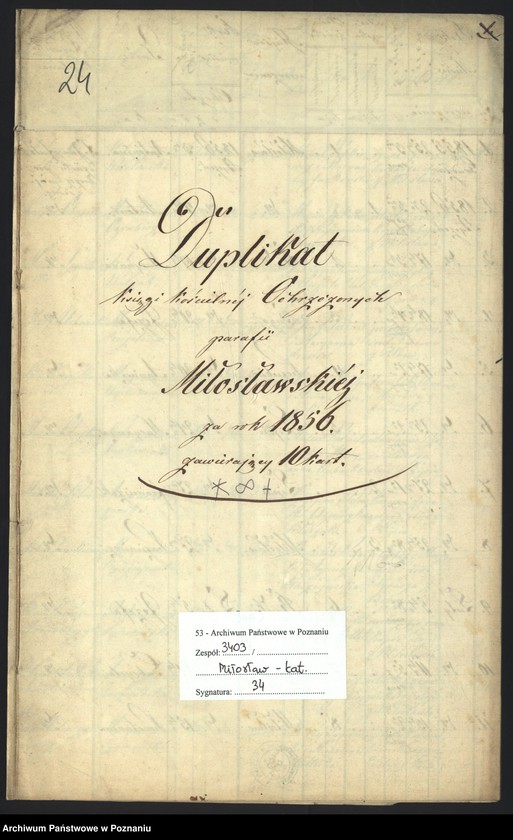 24
Duplikat
księgi kościelnéj Ochrzczonych
parafii
Miłosławskiéj
za rok 1856.
zawierający 10 kart.
* ∞ +
53 - Archiwum Państwowe w Poznaniu
Zespół: 3403 /
Miłosław - kat.
Sygnatura: 34
Archiwum Państwowe w Poznaniu